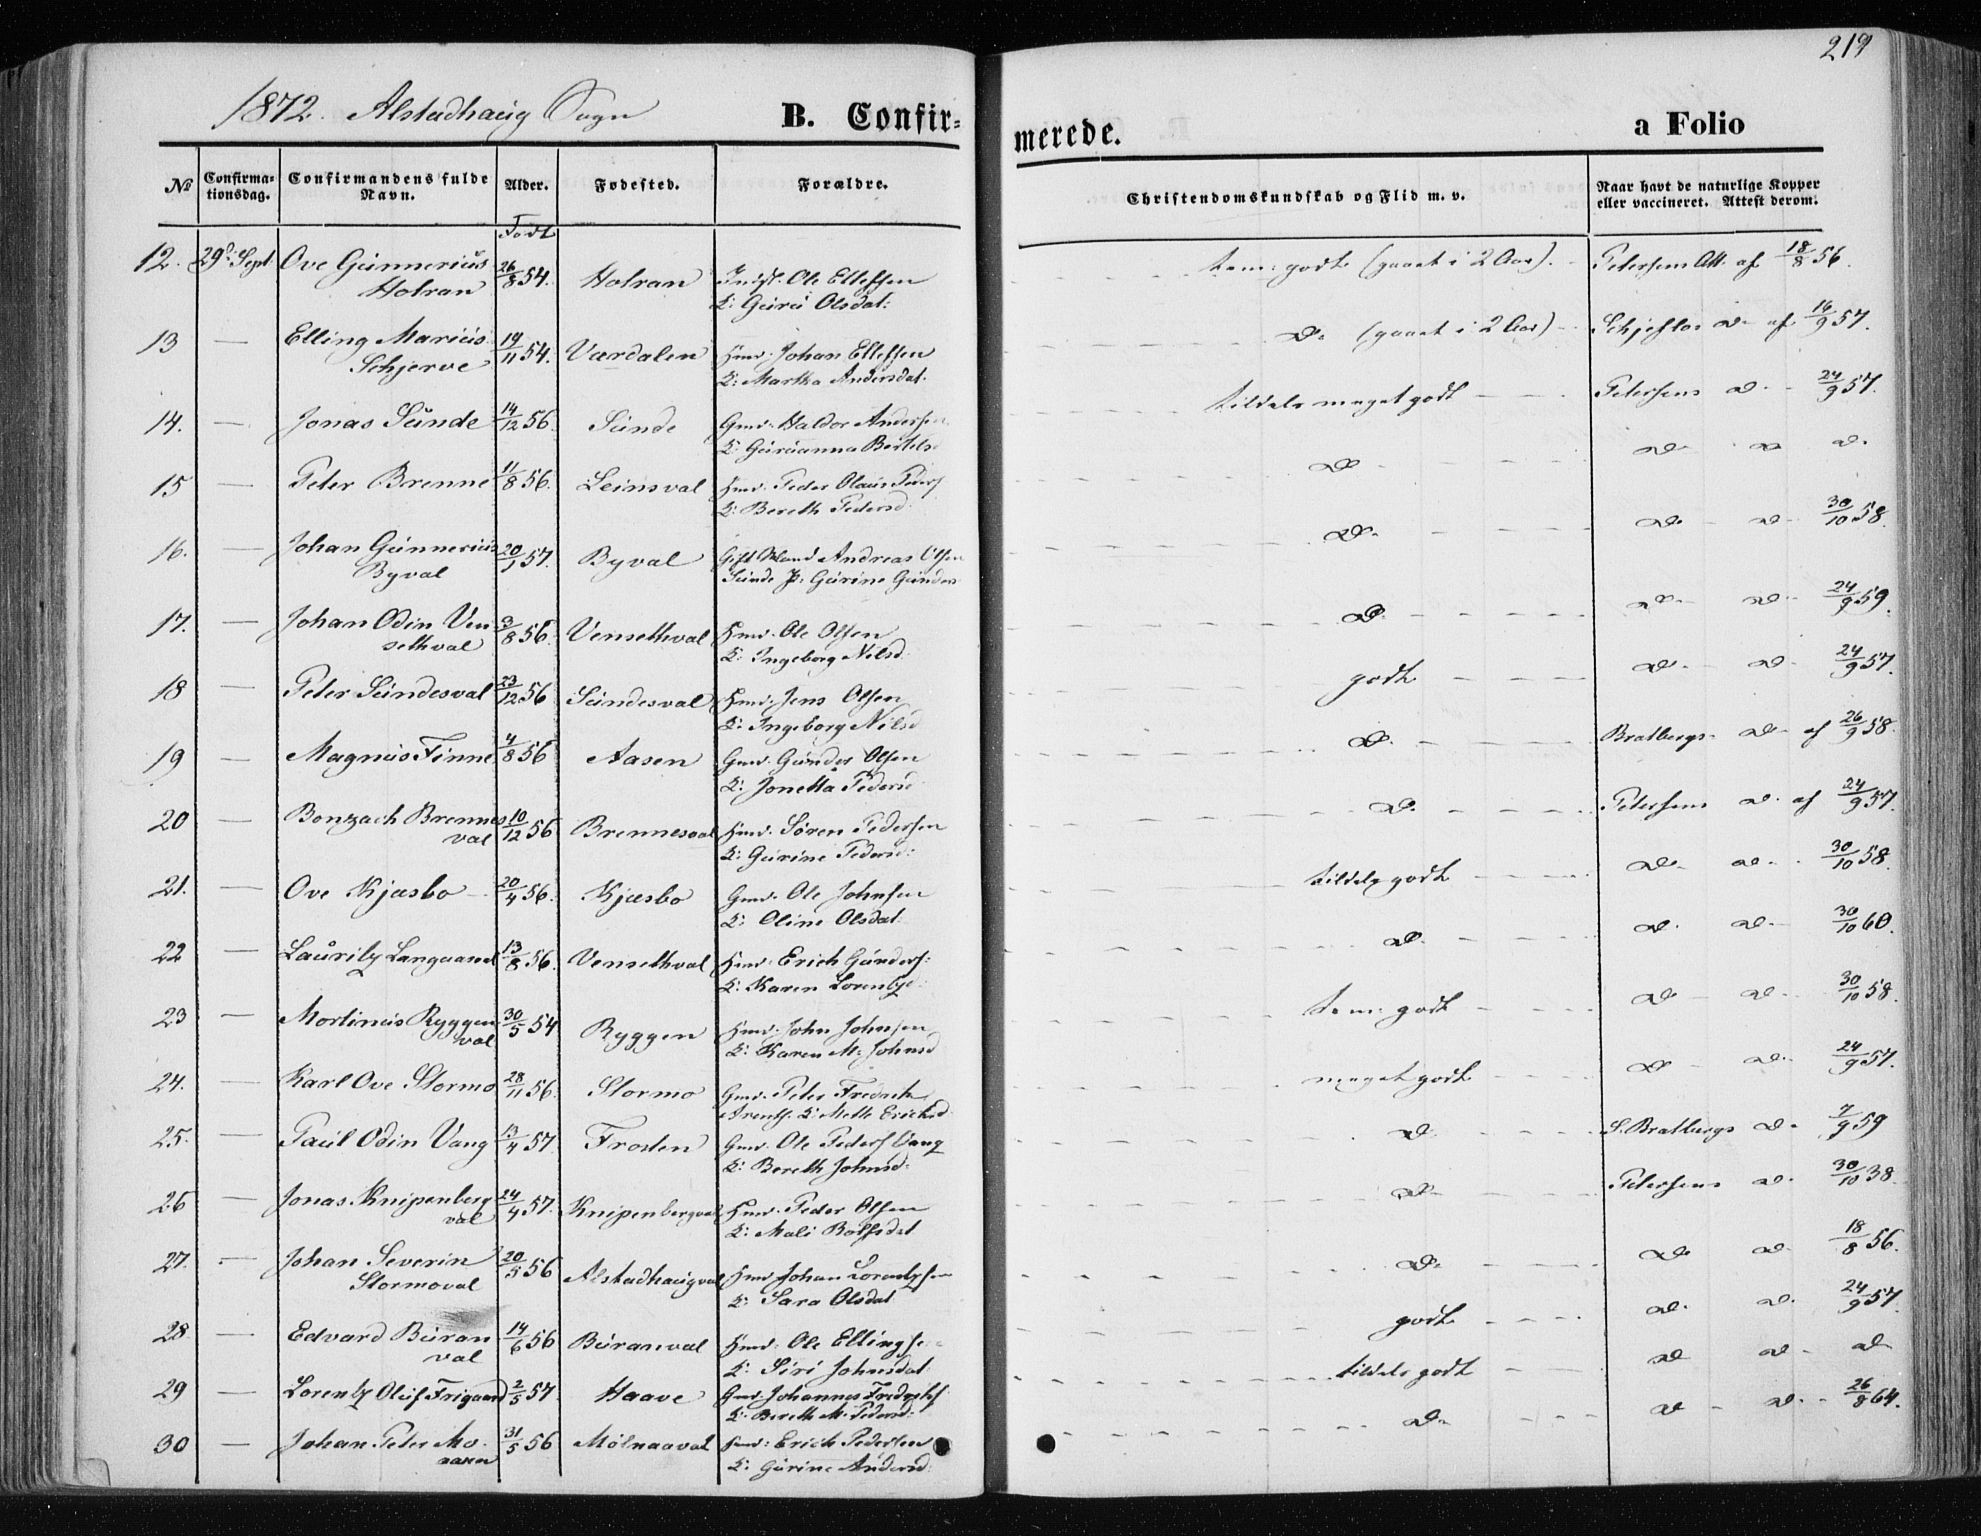 219
1872. Alstadhaug Sogn
B. Confirmerede.
a Folio
No
Confirmationsdag.
Confirmandens fulde Navn.
Alder.
Fødested.
Forældre.
Christendomskundskab og Flid m. v.
Naar havt de naturlige Kopper eller vaccineret. Attest derom.
Født
12. 29d Sept. Ove Gunnerius Holran 26/8 54. Holran Ole Ellefsen K: Guru Olsdat: tem: godt (gaaet i 2 Aar). Petersens Att. af 18/8 56.
13 — Elling Marius Schjerve 19/11 54. Værdalen Hmd. Johan Ellefsen K: Martha Andersdat. do (gaaet i 2 Aar) Schjeflos do af 16/9 57.
14. — Jonas Sunde 14/12 56. Sunde Gmd. Haldor Andersen K: Guruanna Bertels tildels meget godt Petersens do 24/9 57.
15 — Peter Brenne 11/8 56. Leinsval Hmd. Peder Olaus Peders K: Bereth Pedersd. do do do do
16. — Johan Gunnerius Byval 20/1 57. Byval Gift Mand Andreas Olsen Sunde P: Gurine Gunders do do do 30/10 58.
17. — Johan Odin Vensethval 3/8 56. Vensethval Hmd. Ole Olsen K: Ingeborg Nilsd. do do do 24/9 59.
18 — Peter Sundesval 23/12 56 Sundesval Hmd. Jens Olsen K: Ingeborg Nilsd godt do do 24/9 57.
19 — Magnus Finne 4/8 56 Aasen Gmd. Gunder Olsen K: Jonetta Pedersd do Bratbergs do af 26/9 58.
20 — Bonzach Brennesval 10/12 56 Brennesval Hmd. Søren Pedersen K: Gurine Pedersd: do Petersens do af 24/9 57.
21. — Ove Kjæsbo 20/4 56. Kjæsbo Gmd. Ole Johnsen K: Oline Olsdat. tildels godt do do 30/10 58.
22 — Lauritz Langaand 13/8 56. Vensethval Hmd. Erich Gunders: K: Karen Lorentzd. do do do 30/10 60.
23 — Mortinus Ryggenval 30/5 54 Ryggen Hmd. John Johnsen K: Karen M. Johnsd tem: godt do do 30/10 58.
24. — Karl Ove Stormo 28/11 56. Stormo Gmd. Peter Fredrik Arents. K: Mette Erichsd. meget godt do do 24/9 57.
25. — Paul Odin Vang 13/4 57 Frosten Gmd. Ole Peders Vang K: Bereth Johnsd. do S. Bratbergs do 7/9 59
26 — Jonas Knipenbergval 24/4 57. Knipenbergval Hmd. Peder Olsen K: Mali Rolfsdat do Petersens do 30/10 38.
27. — Johan Severin Stormoval 20/5 56 Alstadhaugval Hmd Johan Lorentzsen K: Sara Olsdat do do do 18/8 56.
28. — Edvard Buranval 14/6 56 Buranval Hmd. Ole Ellingse K: Siri Johnsdat godt do do 24/9 57.
29 — Lorentz Oluf Frigaard 2/5 57. Haave Gmd. Johannes Fredrikss K: Bereth M. Pedersd. tildels godt do do do
30 — Johan Peter Mo aaen 31/5 56 Mølnaaval Hmd. Erich Pedersen K: Gurine Andersd. do do do 26/8 64.